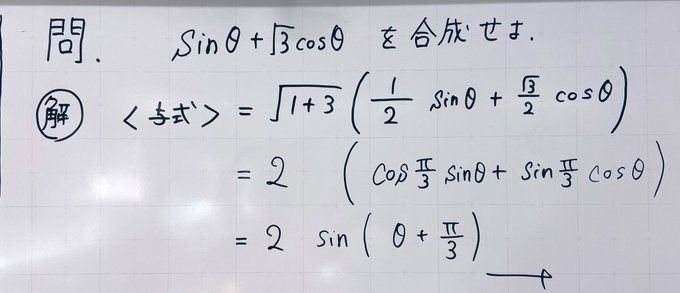 問. sinθ + √3 cosθ を合成せよ.
解 <与式> = √(1+3) (1/2 sinθ + √3/2 cosθ)
= 2 (cos π/3 sinθ + sin π/3 cosθ)
= 2 sin (θ + π/3)